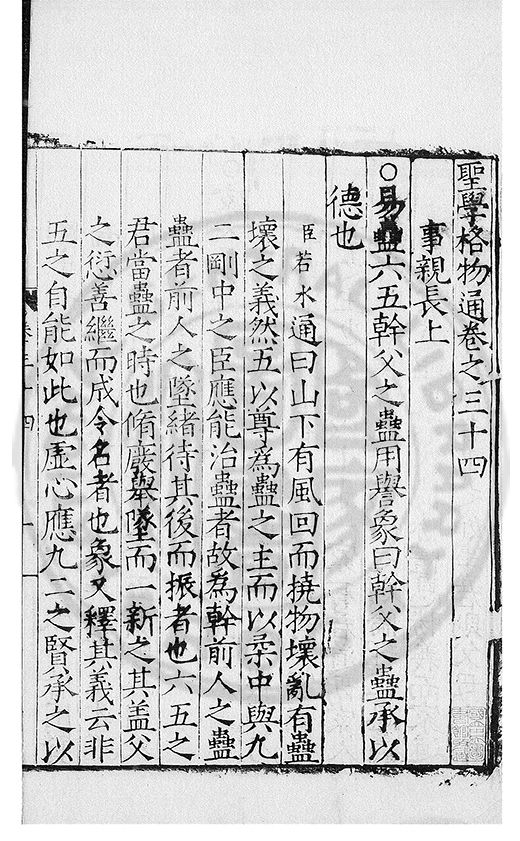 聖學格物通卷之三十四
事親長上
○易蠱六五幹父之蠱用譽象曰幹父之蠱承以
德也
臣若水通曰山下有風回而撓物壞亂有蠱
壞之義然五以尊為蠱之主而以柔中與九
二剛中之臣應能治蠱者故為幹前人之蠱
蠱者前人之墜緒待其後而振者也六五之
君當蠱之時也脩廢舉墜而一新之其盖父
之愆善繼而成令名者也象又釋其義云非
五之自能如此也虛心應九二之賢承之以
卷三十四
一